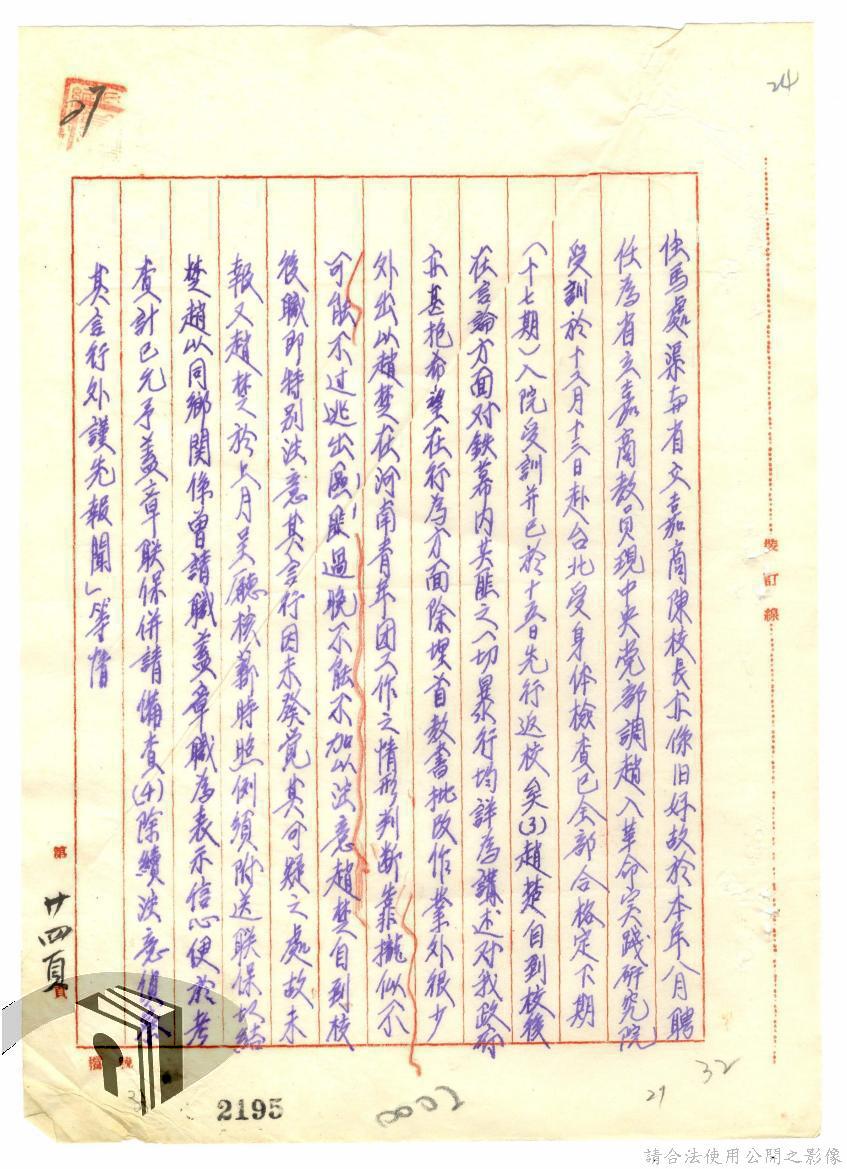 24
27
住馬處渠與省立嘉商陳校長亦係旧好故於本年八月聘
任為省立嘉商教員現中央党部調趙入革命实践研究院
受訓於十二月十三日赴台北受身体檢查已全部合格定下期
(十七期)入院受訓并已於十五日先行返校矣(3)趙楚自到校後
在言論方面对鉄幕内共匪之一切暴行均詳為講述对我政府
亦甚抱希望在行為方面除埋首教書批改作業外很少
外出以趙楚在河南青年团工作之情形判断靠攏似不
可能不过逃出匪區過晚不能不加以注意趙楚自到校
後職即特别注意其言行因未發覚其可疑之處故未
報又趙楚於上月呈廳核薪時照例須附送联保切結
楚趙以同鄉関係曾請職蓋章職為表示信心便於考
查計已允予蓋章联保併請備查(4)除續注意
其言行外謹先報聞」等情
裝訂線
第廿四頁
32
29
2195
請合法使用公開之影像